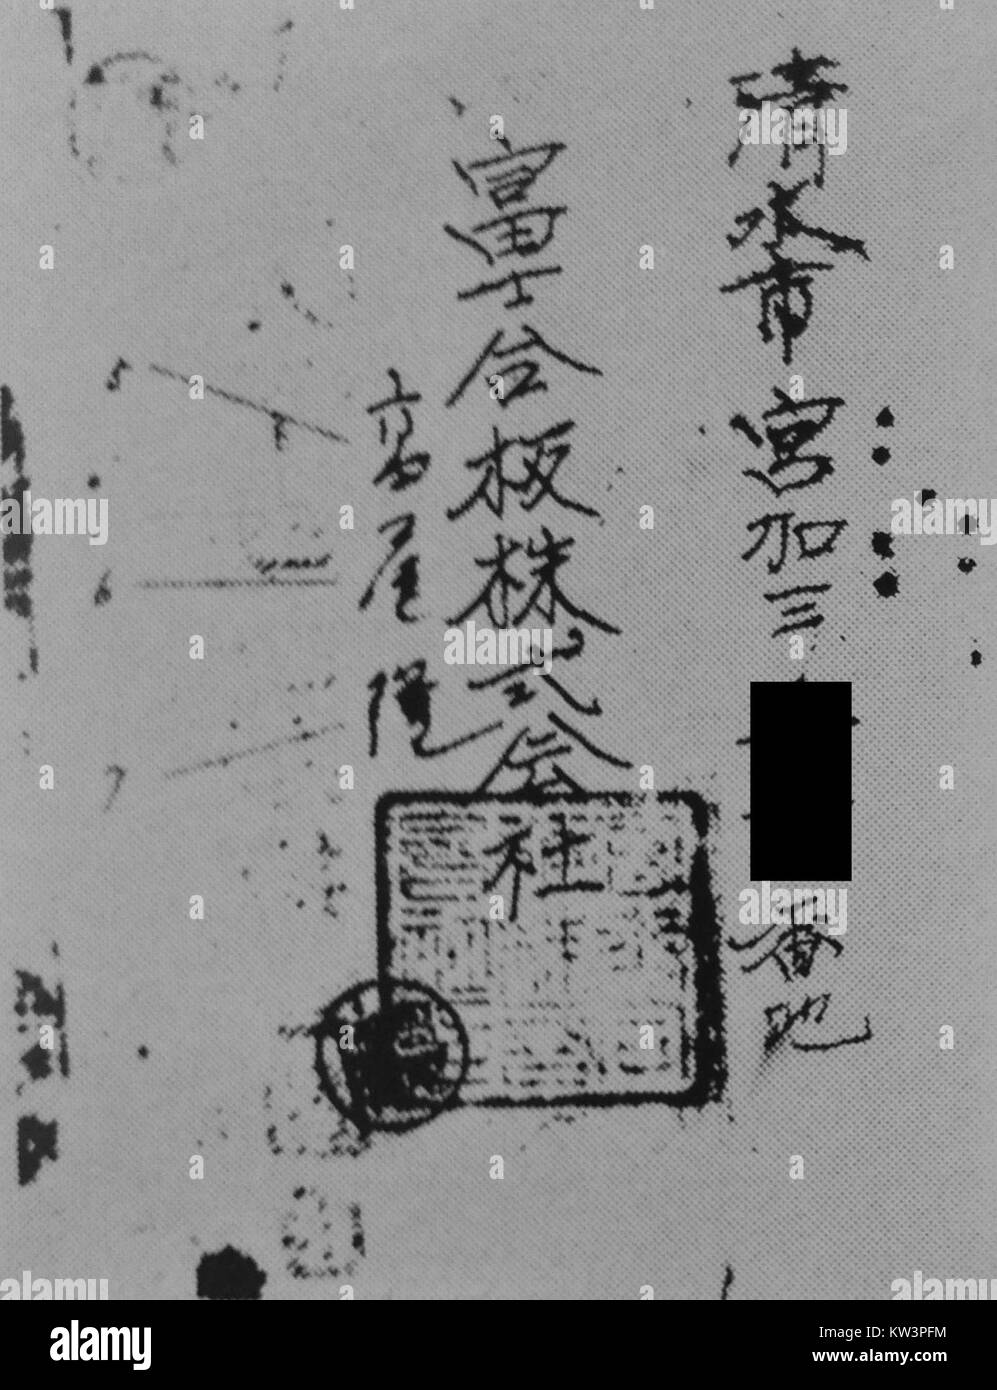 清水市宮加三
番地
富士合板株式会社
高屋隆
5
6
7
alamy
Image ID: KW3PFM
www.alamy.com